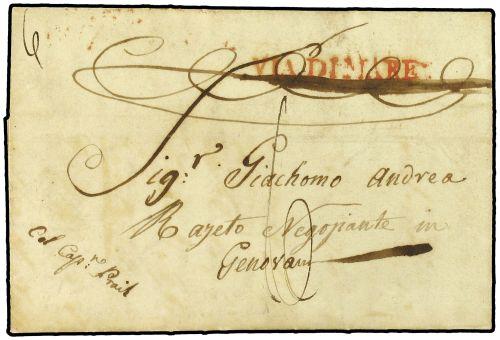 VIA DI MARE
Sig:r. Giachomo Andrea
Razeto Negoziante in
Genova
Col Cap:ne